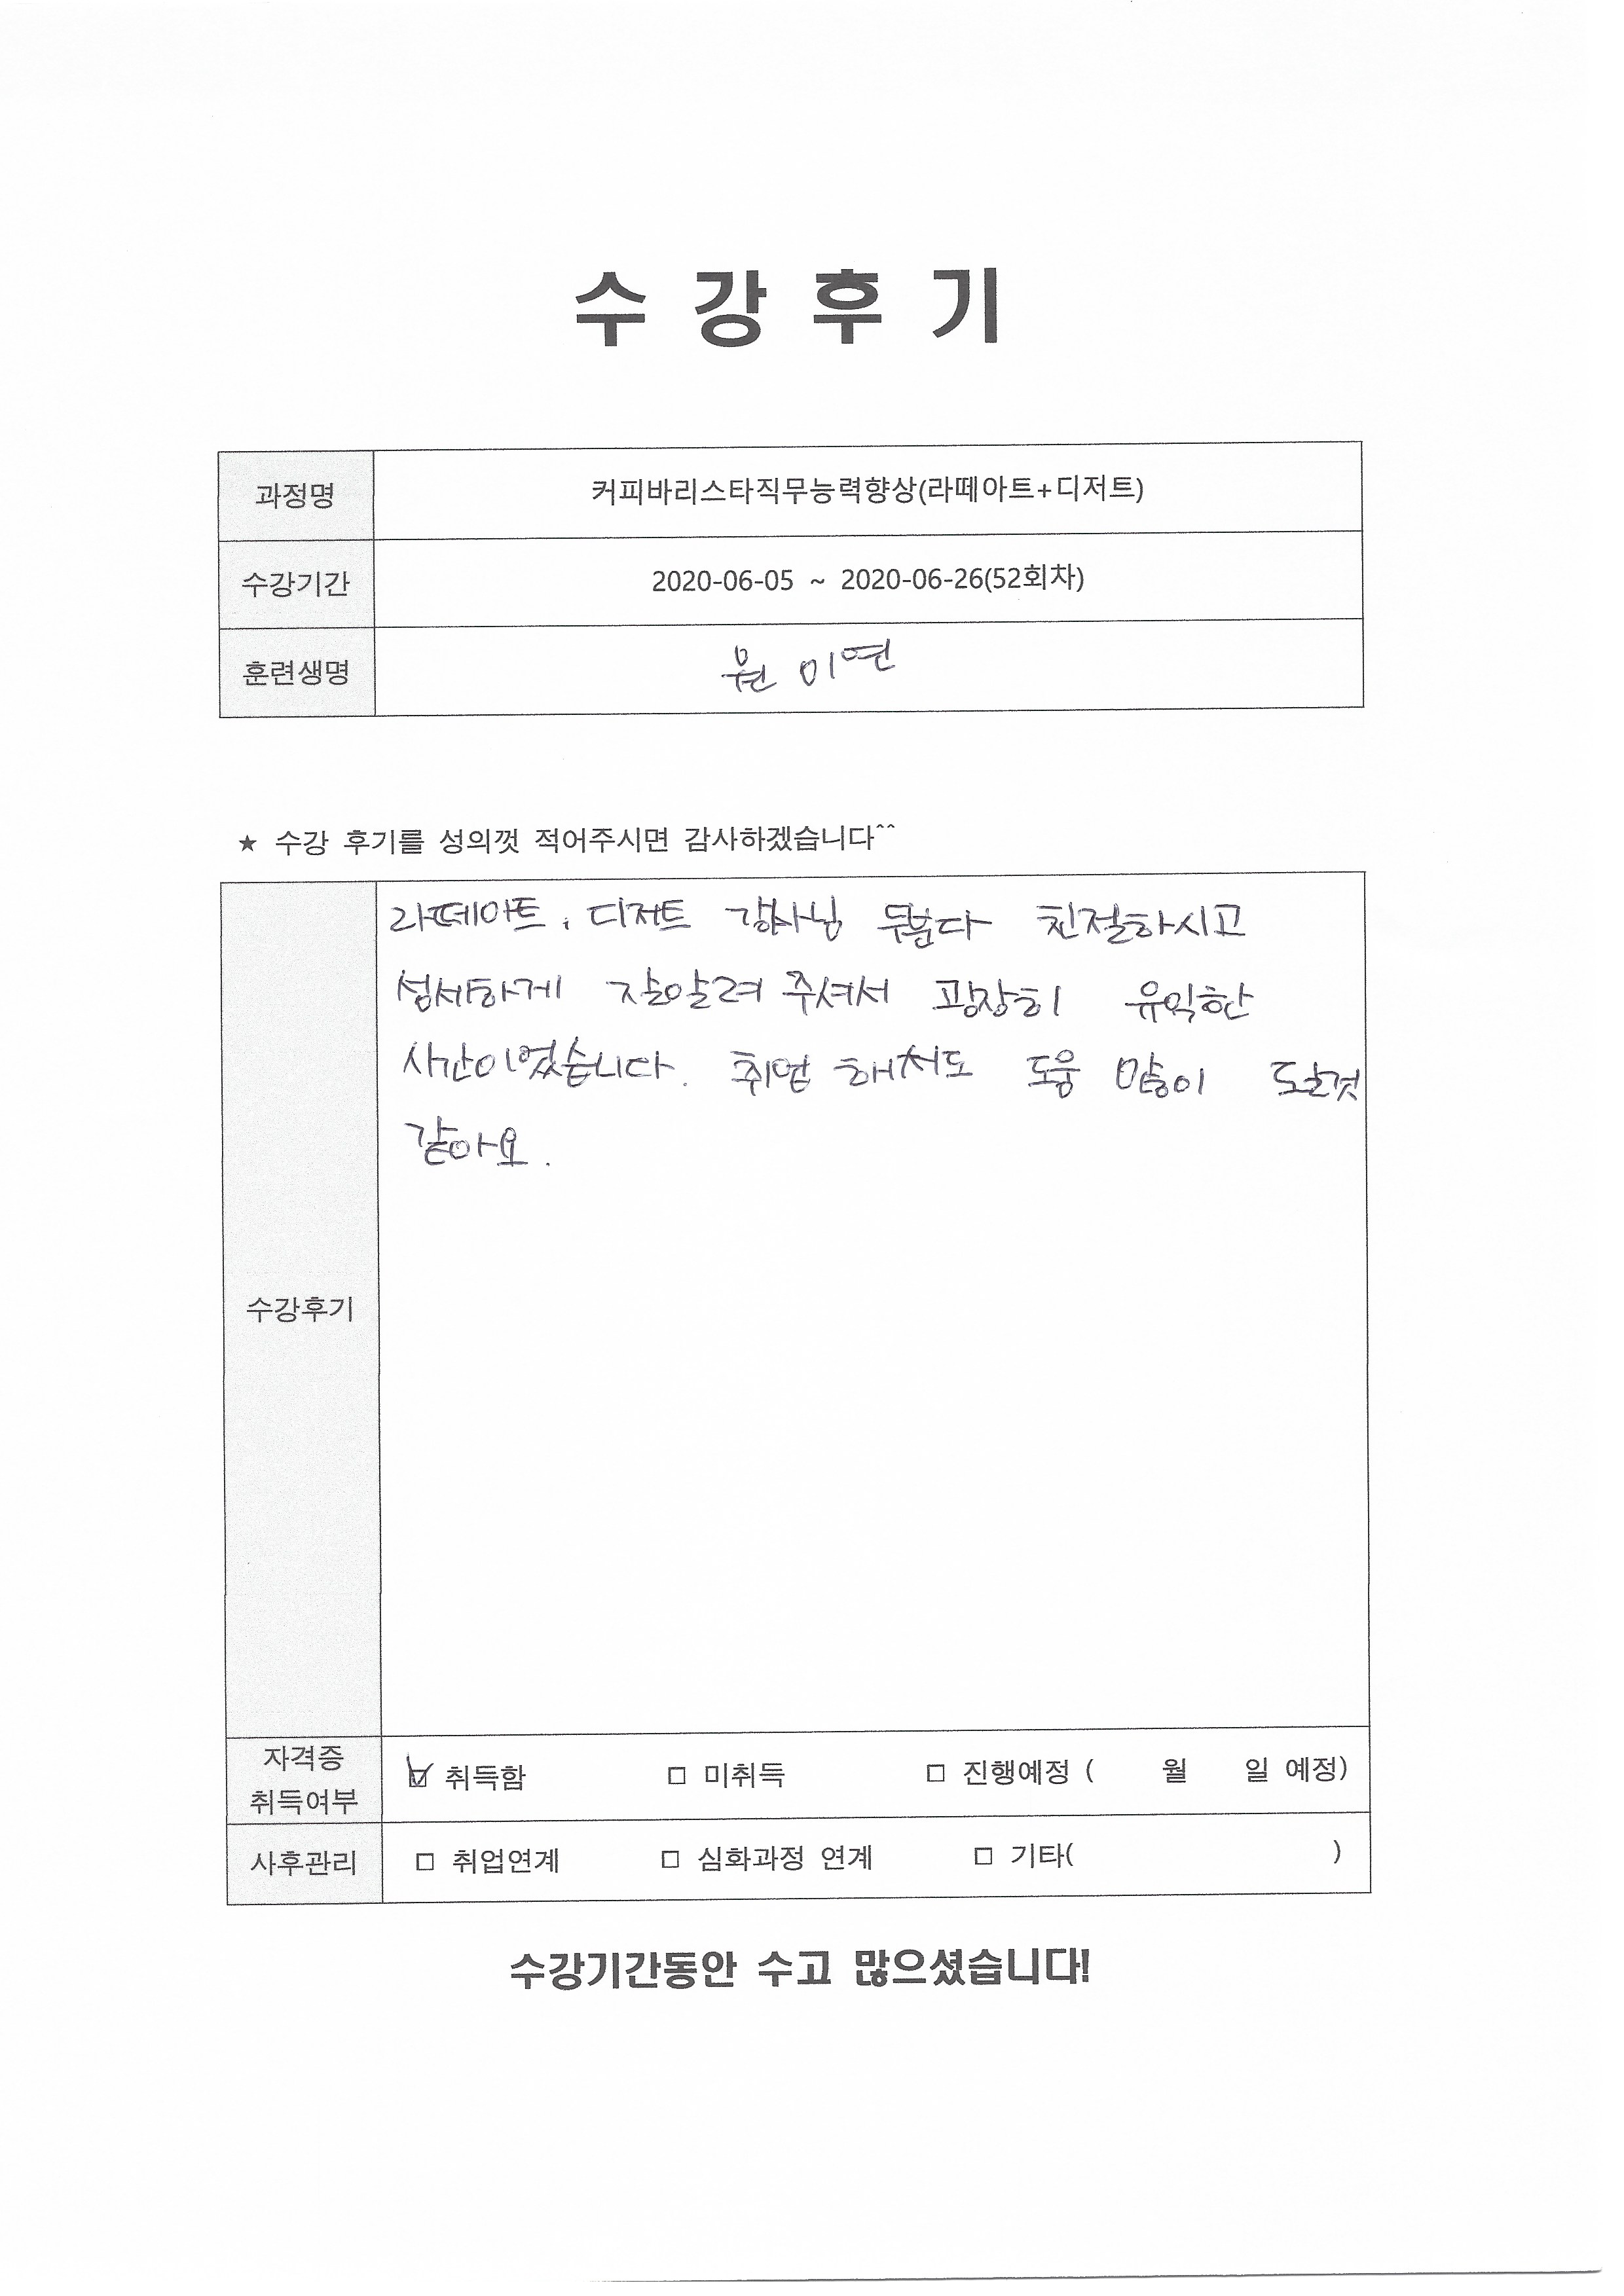 수 강 후 기
과정명 커피바리스타직무능력향상(라떼아트+디저트)
수강기간 2020-06-05 ~ 2020-06-26(52회차)
훈련생명 원 이연
★ 수강 후기를 성의껏 적어주시면 감사하겠습니다^^
라떼아트, 디저트 강사님 두분다 친절하시고
섬세하게 잘알려 주셔서 굉장히 유익한
시간이었습니다. 취업 해서도 도움 많이 될것
같아요.
수강후기
자격증
취득여부
☑ 취득함 □ 미취득 □ 진행예정 ( 월 일 예정)
사후관리 □ 취업연계 □ 심화과정 연계 □ 기타( )
수강기간동안 수고 많으셨습니다!